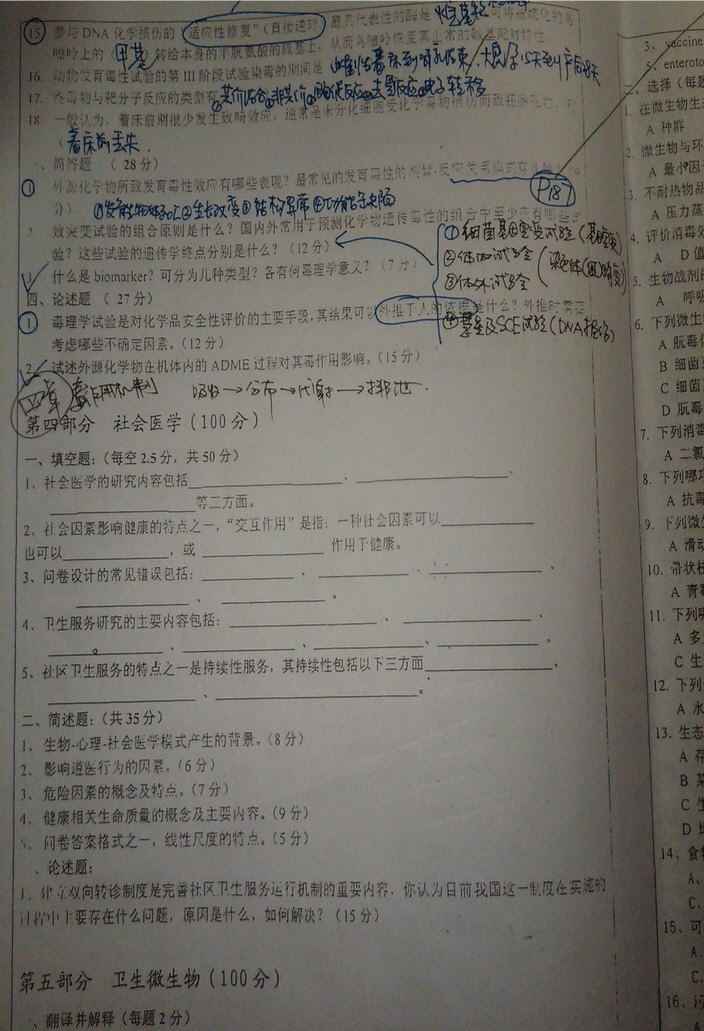 15、参与 DNA 化学损伤的“适应性修复”(直接逆转
嘌呤上的(甲基)转给本身的半胱氨酸的巯基上,从而鸟嘌呤恢复其正常的碱基配对特性。
16、动物发育毒性试验的第 III 阶段试验染毒的期间是
17、终毒物与靶分子反应的类型有①共价结合②非共价③
18、一般认为,着床前期很少发生致畸效应,通常是未分化细胞受化学毒物损伤而致胚胎死亡,
(着床前丢失.
简答题 ( 28 分)
外源化学物所致发育毒性效应有哪些表现?最常见的发育毒性的剂量-反应关系模式有几种?
P187
分) ①发育生物体死亡②生长改变③结构异常④功能缺陷
2、致突变试验的组合原则是什么?国内外常用于预测化学物遗传毒性的组合中至少应有哪些试
验?这些试验的遗传学终点分别是什么?(12 分)
①细菌基因突变试验(基因突变)
②体内试验
③体外试验
什么是 biomarker?可分为几种类型?各有何毒理学意义?(7 分)
四、论述题( 27分)
1 毒理学试验是对化学品安全性评价的主要手段,其结果可以外推于人的依据是什么?外推时需要
考虑哪些不确定因素。(12分)
SCE试验(DNA损伤)
2、试述外源化学物在机体内的 ADME 过程对其毒作用影响。(15 分)
四章 毒作用机制 吸收→分布→代谢→排泄.
第四部分 社会医学(100 分)
一、填空题:(每空 2.5 分,共 50 分)
1、社会医学的研究内容包括____________、____________、
____________等三方面。
2、社会因素影响健康的特点之一,“交互作用”是指:一种社会因素可以____________
也可以____________,或 ____________ 作用于健康。
3、问卷设计的常见错误包括:____________、____________、____________、
____________、____________。
4、卫生服务研究的主要内容包括:____________、____________、
____________、____________、____________、____________。
5、社区卫生服务的特点之一是持续性服务,其持续性包括以下三方面____________、
____________、____________。
二、简述题:(共 35 分)
1、生物-心理-社会医学模式产生的背景。(8 分)
2、影响遵医行为的因素。(6 分)
3、危险因素的概念及特点。(7 分)
4、健康相关生命质量的概念及主要内容。(9 分)
5、问卷答案格式之一,线性尺度的特点。(5 分)
三、论述题:
1、建立双向转诊制度是完善社区卫生服务运行机制的重要内容,你认为目前我国这一制度在实施的
过程中主要存在什么问题,原因是什么,如何解决?(15 分)
第五部分 卫生微生物(100 分)
一、翻译并解释(每题 2 分)
3、vaccine
5、enteroto
二、选择(每
1. 在微生物生
A 种群
2. 微生物与环
A 最小因
3. 不耐热物品
A 压力蒸
4. 评价消毒效
A D 值
5. 生物战剂的
A 呼吸
6. 下列微生
A 肮毒
B 细菌
C 细菌
D 肮毒
7. 下列消毒
A 二氯
8. 下列哪项
A 抗毒
9. 下列微
A 滑动
10. 带状
A 青
11. 下列
A 多
C 生
12. 下列
A 水
13. 生态
A 存
B 某
C 生
D
14、食
A、
C、
15、可
A、
C、
16、污